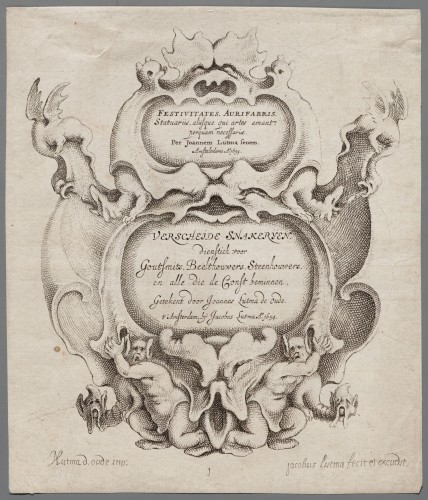 FESTIVITATES AURIFABRIS,
Statuariis, alijsque qui artes amant
perquam necessariæ.
Per Joannem Lutma senem.
Amstelodami Aº 1654.
VERSCHEIDE SNAKERYEN.
dienstich voor
Goutsmits, Beelthouwers, Steenhouwers,
en alle die de Const beminnen,
Getekent door Joannes Lutma de Oude.
t'Amsterdam, by Jacobus Lutma Aº 1654.
JLutma d. oude inv.
jacobus Lutma fecit et excudit.
1